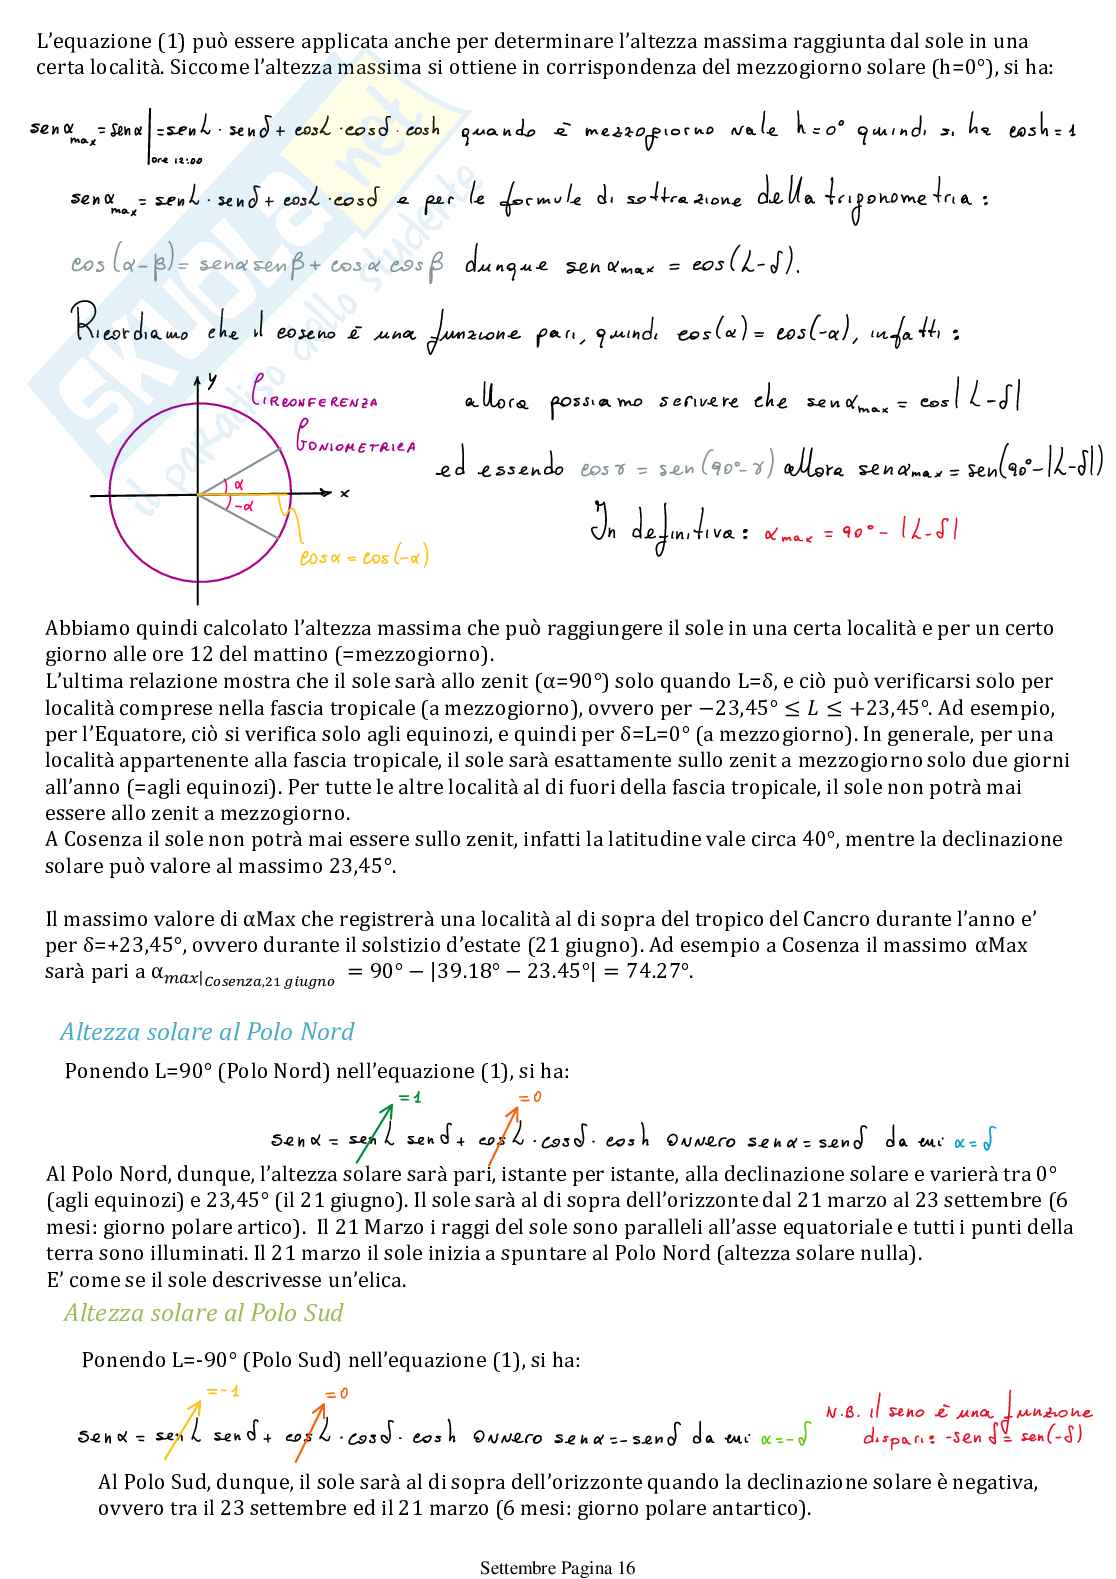 L'equazione (1) può essere applicata anche per determinare l'altezza massima raggiunta dal sole in una
certa località. Siccome l'altezza massima si ottiene in corrispondenza del mezzogiorno solare (h=0°), si ha:
senα max = senα |ore 12:00 = senL · senδ + cosL · cosδ · cosh quando è mezzogiorno vale h=0° quindi si ha cosh=1
senα max = senL · senδ + cosL · cosδ e per le formule di sottrazione della trigonometria:
cos(α-β)= senα senβ + cosα cosβ dunque senα max = cos(L-δ).
Ricordiamo che il coseno è una funzione pari, quindi cos(α)=cos(-α), infatti:
y
Circonferenza
Goniometrica
α
-α
x
cosα=cos(-α)
allora possiamo scrivere che senα max = cos|L-δ|
ed essendo cosγ = sen(90°-γ) allora senα max = sen(90°-|L-δ|)
In definitiva: α max = 90° - |L-δ|
Abbiamo quindi calcolato l'altezza massima che può raggiungere il sole in una certa località e per un certo
giorno alle ore 12 del mattino (=mezzogiorno).
L'ultima relazione mostra che il sole sarà allo zenit (α=90°) solo quando L=δ, e ciò può verificarsi solo per
località comprese nella fascia tropicale (a mezzogiorno), ovvero per −23,45° ≤ L ≤ +23,45°. Ad esempio,
per l'Equatore, ciò si verifica solo agli equinozi, e quindi per δ=L=0° (a mezzogiorno). In generale, per una
località appartenente alla fascia tropicale, il sole sarà esattamente sullo zenit a mezzogiorno solo due giorni
all'anno (=agli equinozi). Per tutte le altre località al di fuori della fascia tropicale, il sole non potrà mai
essere allo zenit a mezzogiorno.
A Cosenza il sole non potrà mai essere sullo zenit, infatti la latitudine vale circa 40°, mentre la declinazione
solare può valore al massimo 23,45°.
Il massimo valore di αMax che registrerà una località al di sopra del tropico del Cancro durante l'anno e'
per δ=+23,45°, ovvero durante il solstizio d'estate (21 giugno). Ad esempio a Cosenza il massimo αMax
sarà pari a α max|Cosenza,21 giugno = 90° − |39.18° − 23.45°| = 74.27°.
Altezza solare al Polo Nord
Ponendo L=90° (Polo Nord) nell'equazione (1), si ha:
=1 =0
senα = senL senδ + cosL · cosδ · cosh ovvero senα = senδ da cui α=δ
Al Polo Nord, dunque, l'altezza solare sarà pari, istante per istante, alla declinazione solare e varierà tra 0°
(agli equinozi) e 23,45° (il 21 giugno). Il sole sarà al di sopra dell'orizzonte dal 21 marzo al 23 settembre (6
mesi: giorno polare artico). Il 21 Marzo i raggi del sole sono paralleli all'asse equatoriale e tutti i punti della
terra sono illuminati. Il 21 marzo il sole inizia a spuntare al Polo Nord (altezza solare nulla).
E' come se il sole descrivesse un'elica.
Altezza solare al Polo Sud
Ponendo L=-90° (Polo Sud) nell'equazione (1), si ha:
=-1 =0
senα = senL senδ + cosL · cosδ · cosh ovvero senα=-senδ da cui α=-δ
N.B. il seno è una funzione
dispari: -senδ = sen(-δ)
Al Polo Sud, dunque, il sole sarà al di sopra dell'orizzonte quando la declinazione solare è negativa,
ovvero tra il 23 settembre ed il 21 marzo (6 mesi: giorno polare antartico).
Settembre Pagina 16
SKUOLA.net
il paradiso dello studente